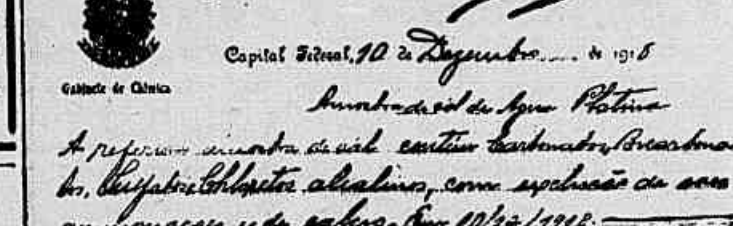 Gabinete de Chimica
Capital Federal, 10 de Dezembro de 1918
Amostra de sal de Agua Platina
A referida amostra de sal contém Carbonatos, Bicarbona
tos, Sulfatos e Chloretos alcalinos, com exclusão de
10/12/1918.